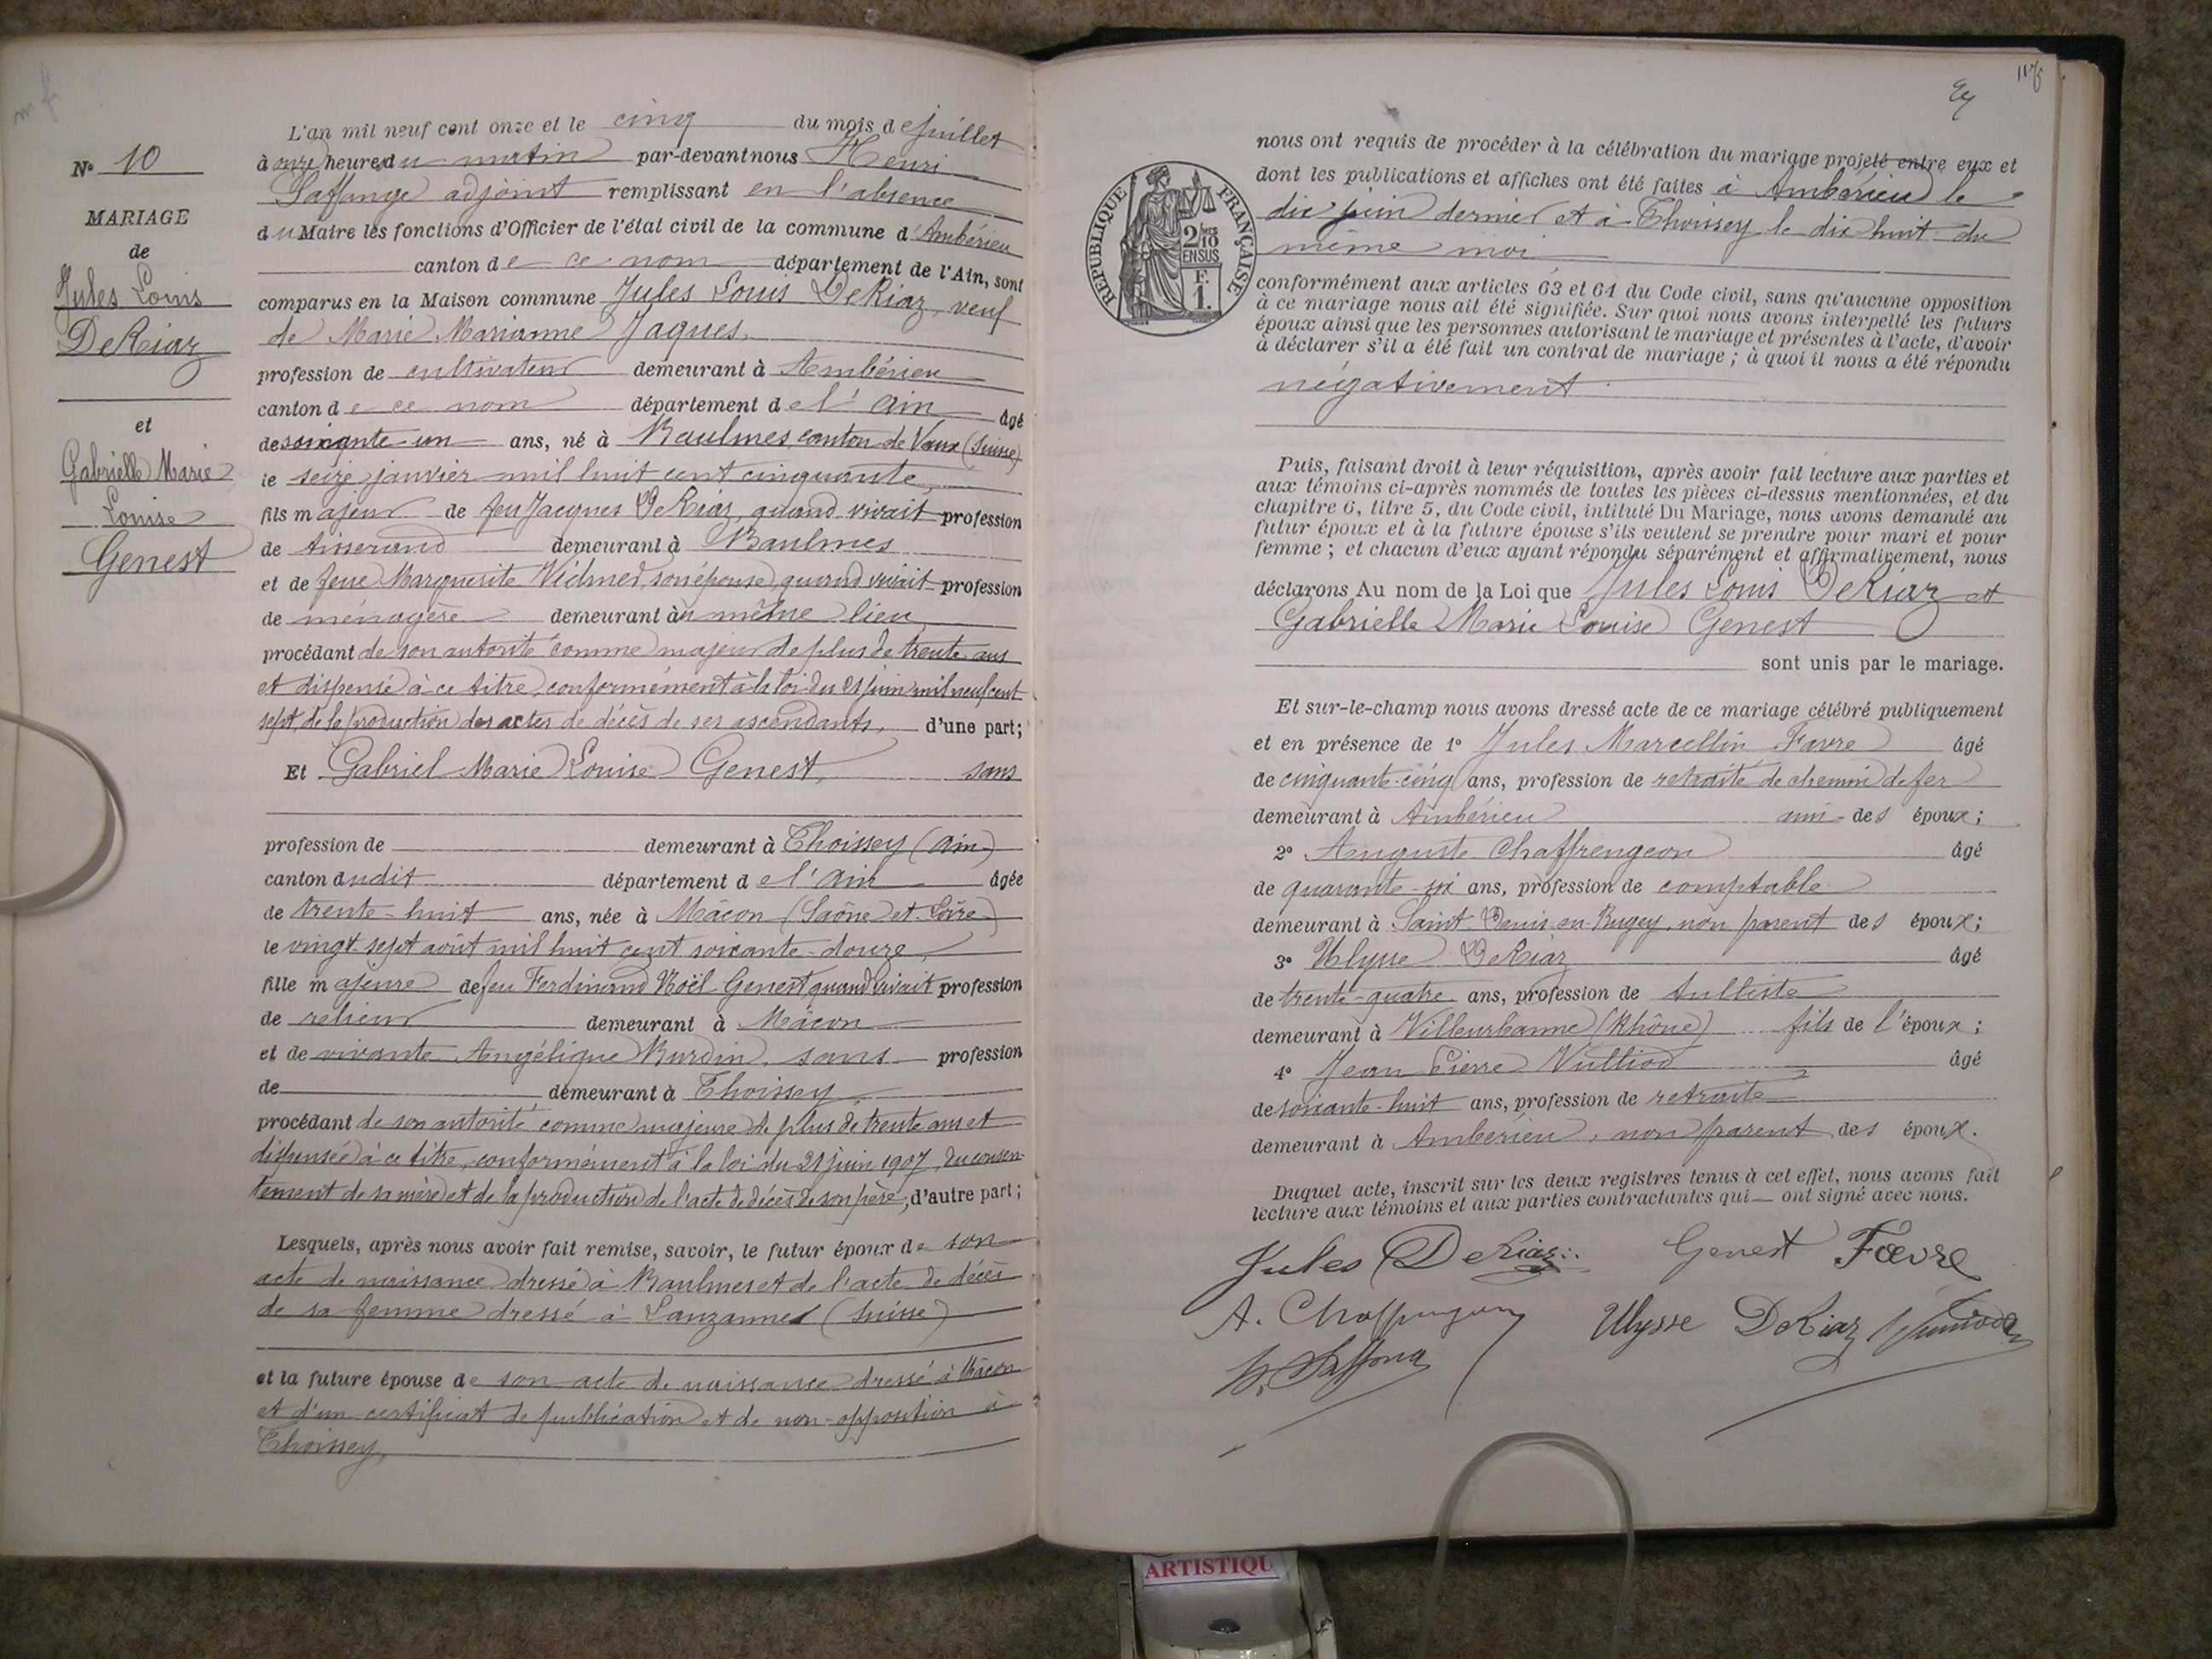 N° 10
MARIAGE
de
Jules Louis
DeRiaz
et
Gabrielle Marie
Louise
Genest
L'an mil neuf cent onze et le cinq du mois de juillet
à onze heures du matin par-devant nous Henri
Laffange adjoint remplissant en l'absence
du Maire les fonctions d'Officier de l'état civil de la commune d'Ambérieu
canton de ce nom département de l'Ain, sont
comparus en la Maison commune Jules Louis DeRiaz, veuf
de Marie Marianne Jaques,
profession de cultivateur demeurant à Ambérieu
canton de ce nom département de l'Ain âgé
de soixante-un ans, né à Baulmes, canton de Vaux (Suisse)
le seize janvier mil huit cent cinquante,
fils majeur de feu Jacques DeRiaz, quand vivait profession
de tisserand demeurant à Baulmes
et de feue Marguerite Vidmer, son épouse, quand vivait profession
de ménagère demeurant au même lieu
procédant de son autorité comme majeur de plus de trente ans
et dispensé à ce titre, conformément à la loi du 21 juin mil neuf cent
sept, de la production des actes de décès de ses ascendants, d'une part;
Et Gabriel Marie Louise Genest, sans
profession de demeurant à Thoissey (Ain)
canton dudit département de l'Ain âgée
de trente-huit ans, née à Mâcon (Saône et Loire)
le vingt-sept août mil huit cent soixante-douze,
fille majeure de feu Ferdinand Noël Genest quand vivait profession
de relieur demeurant à Mâcon
et de vivante Angélique Burdin, sans profession
de demeurant à Thoissey,
procédant de son autorité comme majeure de plus de trente ans et
dispensée à ce titre, conformément à la loi du 21 juin 1907, du consen-
tement de sa mère et de la production de l'acte de décès de son père, d'autre part;
Lesquels, après nous avoir fait remise, savoir, le futur époux de son
acte de naissance dressé à Baulmes et de l'acte de décès
de sa femme dressé à Lauzannes (Suisse)
et la future épouse de son acte de naissance dressé à Mâcon
et d'un certificat de publication et de non-opposition à
Thoissey
nous ont requis de procéder à la célébration du mariage projeté entre eux et
dont les publications et affiches ont été faites à Ambérieu le
dix juin dernier et à Thoissey le dix huit du
même moi
RÉPUBLIQUE FRANÇAISE
2/10
EN SUS
F.
1.
conformément aux articles 63 et 64 du Code civil, sans qu'aucune opposition
à ce mariage nous ait été signifiée. Sur quoi nous avons interpellé les futurs
époux ainsi que les personnes autorisant le mariage et présentes à l'acte, d'avoir
à déclarer s'il a été fait un contrat de mariage ; à quoi il nous a été répondu
négativement
Puis, faisant droit à leur réquisition, après avoir fait lecture aux parties et
aux témoins ci-après nommés de toutes les pièces ci-dessus mentionnées, et du
chapitre 6, titre 5, du Code civil, intitulé Du Mariage, nous avons demandé au
futur époux et à la future épouse s'ils veulent se prendre pour mari et pour
femme ; et chacun d'eux ayant répondu séparément et affirmativement, nous
déclarons Au nom de la Loi que Jules Louis DeRiaz et
Gabrielle Marie Louise Genest
sont unis par le mariage.
Et sur-le-champ nous avons dressé acte de ce mariage célébré publiquement
et en présence de 1° Jules Marcellin Favre âgé
de cinquante-cinq ans, profession de retraité de chemin de fer
demeurant à Ambérieu ami des époux ;
2° Auguste Chaffrengeon âgé
de quarante-six ans, profession de comptable
demeurant à Saint-Denis-en-Bugey, non parent des époux ;
3° Ulysse DeRiaz âgé
de trente-quatre ans, profession de tulliste
demeurant à Villeurbanne (Rhône) fils de l'époux ;
4° Jean Pierre Vulliod âgé
de soixante-huit ans, profession de retraité
demeurant à Ambérieu, non parent des époux.
Duquel acte, inscrit sur les deux registres tenus à cet effet, nous avons fait
lecture aux témoins et aux parties contractantes qui ont signé avec nous.
Jules DeRiaz Genest Faevre
A. Chaffrengeon Ulysse DeRiaz
ARTISTIQU